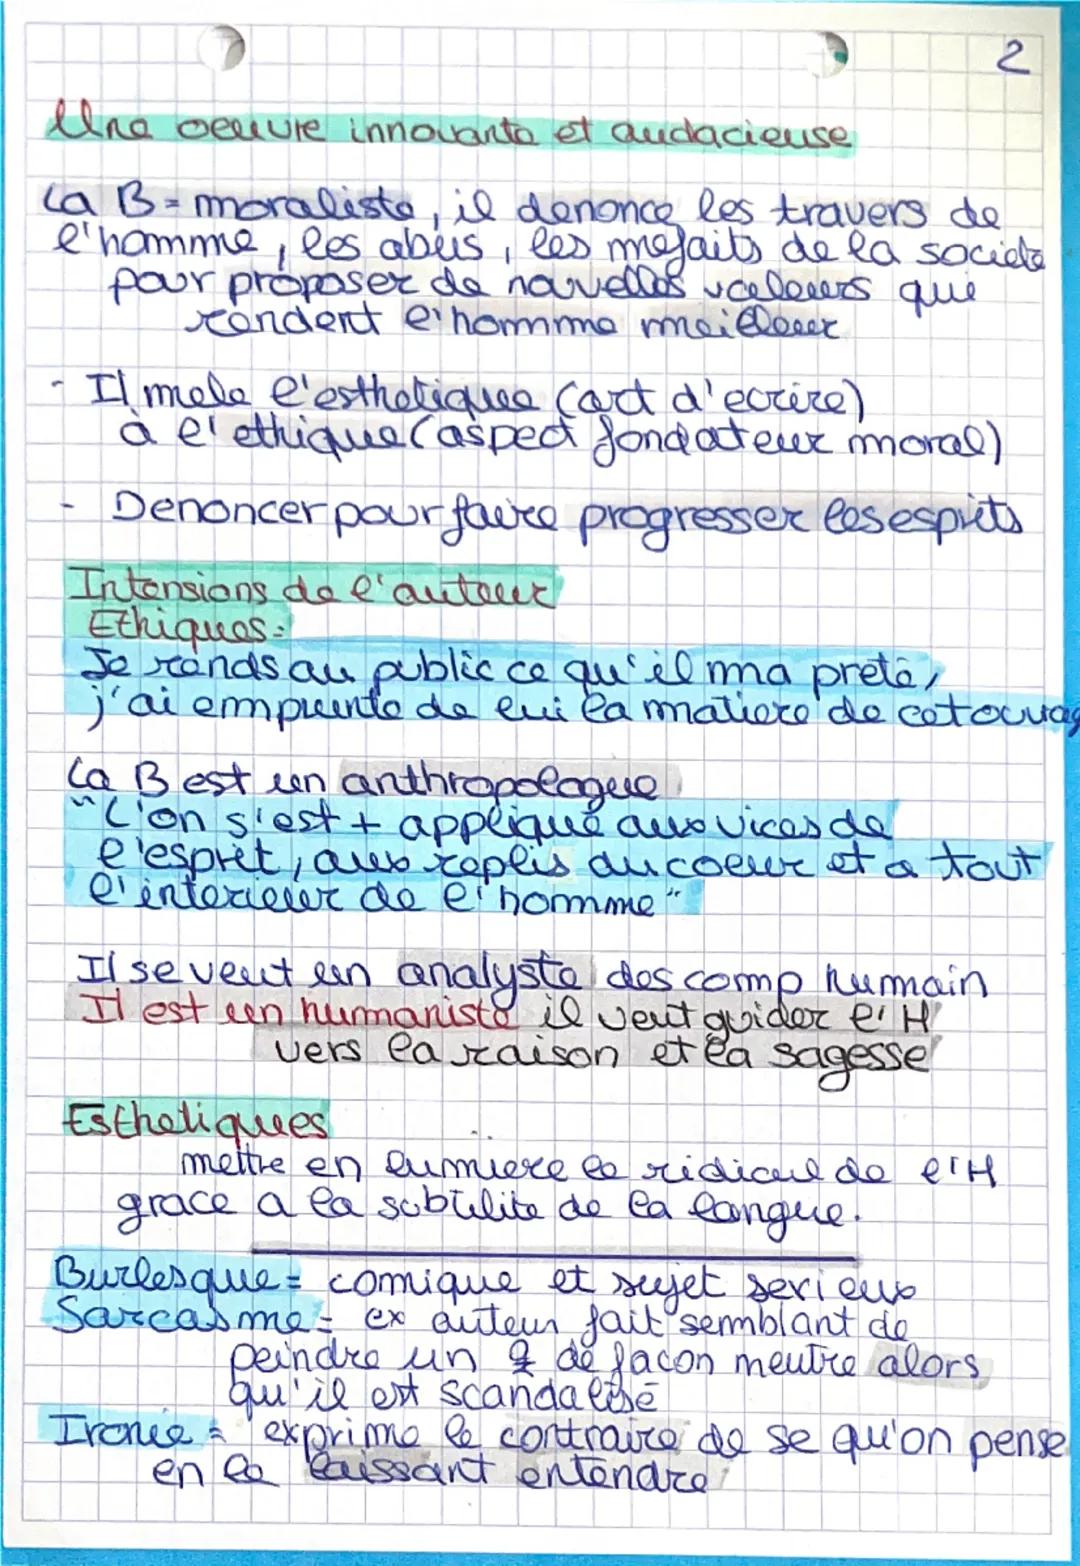 2
Une oeuvre innovante et audacieuse
La B = moraliste, il denonce les travers de
l'homme, les abus, les mefaits de la societe
pour proposer de nouvelles valeurs qui
rendent l'homme meilleur
- Il mele l'esthetique (art d'ecrire)
à l'ethique (aspect fondateur moral)
- Denoncer pour faire progresser les esprits
Intensions de l'auteur
Ethiques:
Je rends au public ce qu'il ma preté,
j'ai emprunte de lui la matiere de cet ouvrag
La B est un anthropologue
"L'on s'est + appliqué aux vices de
l'esprit, aux replis du coeur et a tout
l'interieur de l'homme"
Il se veut un analyste des comp humain
Il est un humaniste il veut guider l'H
vers la raison et la sagesse
Esthetiques
mettre en lumiere le ridicul de l'H
grace a la subtilite de la langue.
Burlesque = comique et sujet serieux
Sarcasme = ex auteur fait semblant de
peindre un de facon meutre alors
qu'il est scandalisé
Ironie = exprime le contraire de se qu'on pense
en le laissant entendre